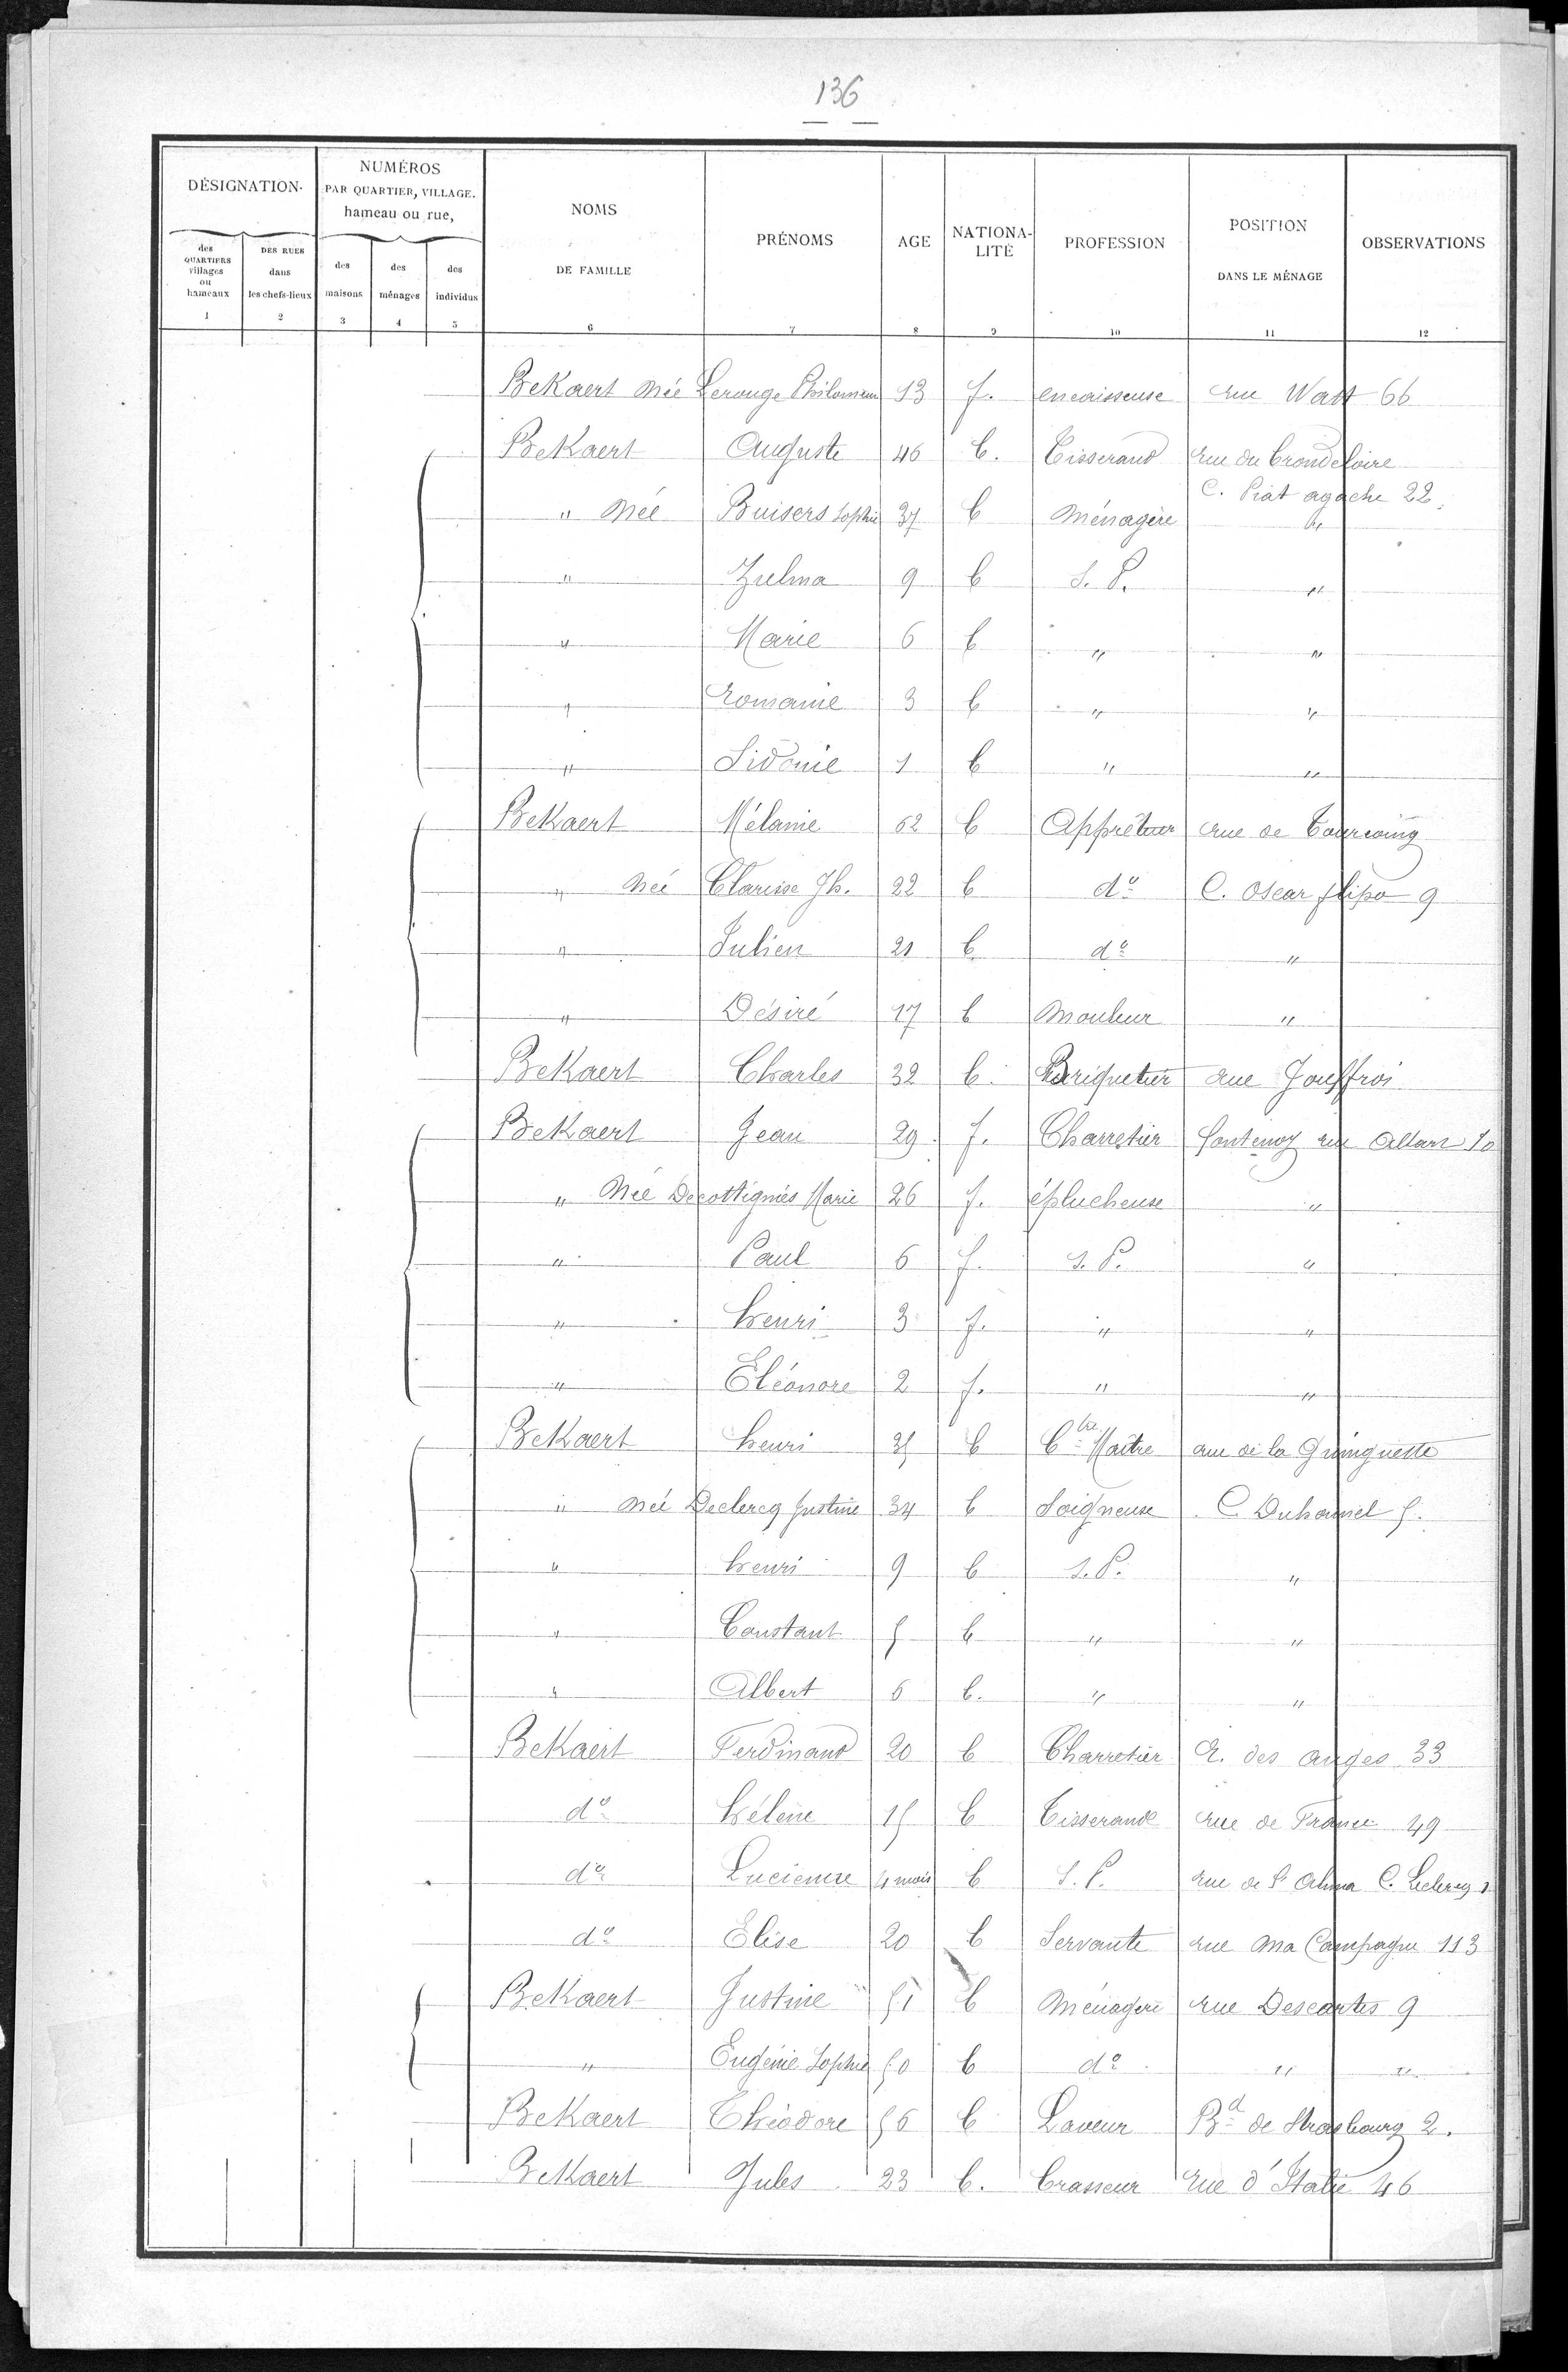 136
DÉSIGNATION
NUMÉROS
PAR QUARTIER, VILLAGE.
hameau ou rue,
NOMS
DE FAMILLE
PRÉNOMS
AGE
NATIONA-
LITÉ
PROFESSION
POSITION
DANS LE MÉNAGE
OBSERVATIONS
des
QUARTIERS
villages
ou
hameaux
DES RUES
dans
les chefs-lieux
des
maisons
des
ménages
des
individus
1 2 3 4 5 6 7 8 9 10 11 12
BeKaert née Lerouge 13 f. encaisseuse rue Watt 66
BeKaert Auguste 46 b. Tisserand rue du
C. Piat agache 22
" née Buisers Sophie 37 b Ménagère "
" Zulma 9 b S. P. "
" Marie 6 b " "
" Romanie 3 b " "
" Sidonie 1 b " "
BeKaert Mélanie 62 b Apprêteur rue de Tourcoing
" née Clarisse Jh. 22 b do C. Oscar flipo 9
" Julien 21 b do "
" Désiré 17 b Mouleur "
BeKaert Charles 32 b. Briquetier rue Jouffroi
BeKaert Jean 29 f. Charretier fontenoy rue Allart 10
" née Decottignies Marie 26 f. éplucheuse "
" Paul 6 f. S. P. "
" henri 3 f. " "
" Eléonore 2 f. " "
BeKaert henri 35 b Ctre Maître rue de la Guinguette
" née Declercq Justine 34 b Soigneuse C Duhamel 5.
" henri 9 b S. P. "
" Constant 5 b " "
" Albert 6 b. " "
BeKaert Ferdinand 20 b Charretier R. des anges 33
do hélène 15 b Tisserande rue de France 49
do Lucienne 4 mois b S. P. rue de l'Alma C. Leclercq 1
do Elise 20 b Servante rue Ma Campagne 113
BeKaert Justine 51 b Ménagère rue Descartes 9
" Eugénie Sophie 50 b do " "
BeKaert Théodore 56 b Laveur Bd de Strasbourg 2.
BeKaert Jules 23 b. brasseur rue d'Italie 46